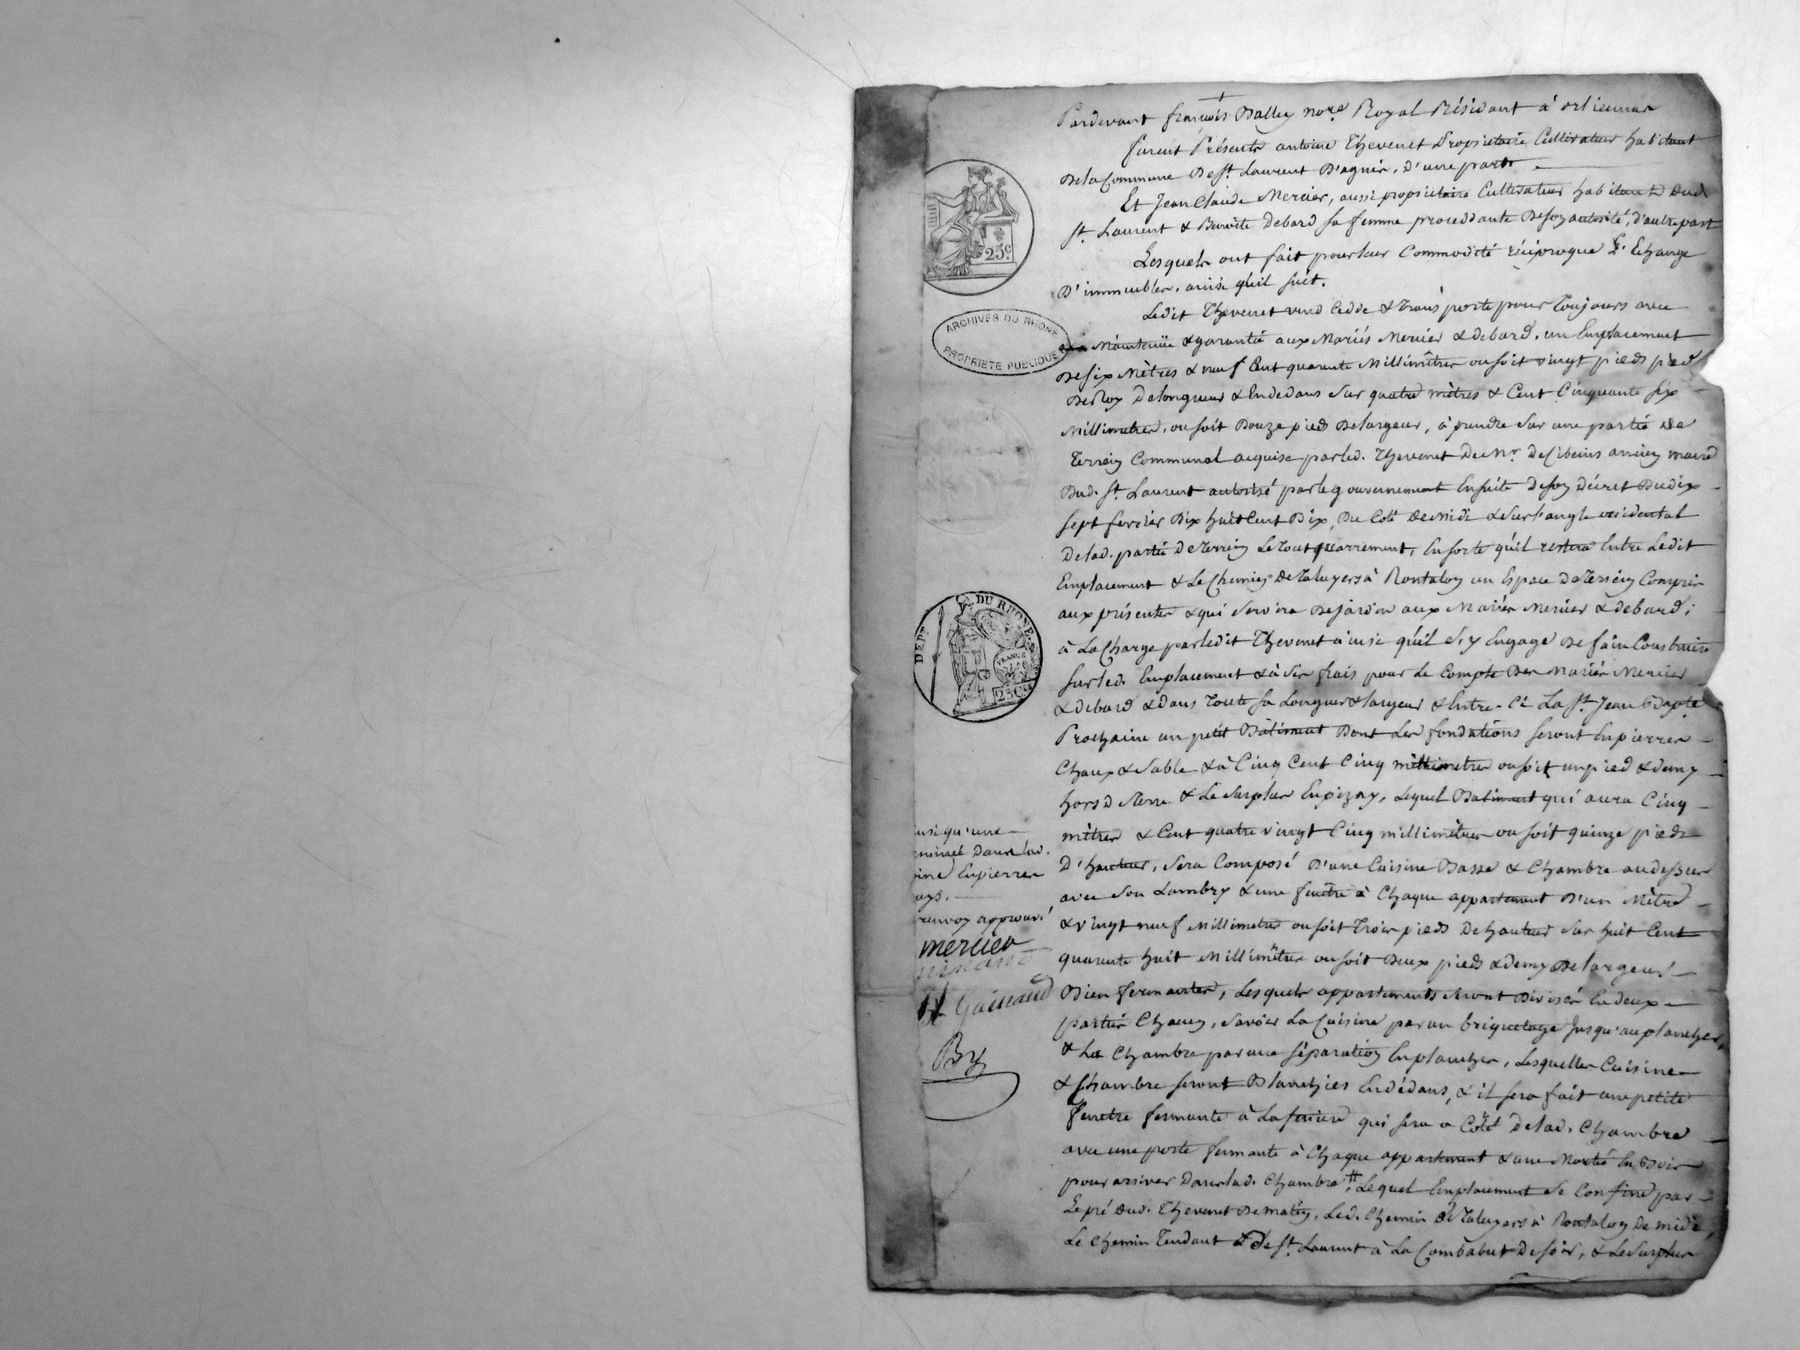 Pardevant françois Balley no.re Royal Résidant à orlienas
furent Présents antoine Thevenet Propriétaire Cultivateur habitant
De la Commune De St. Laurent D'agnir, d'une part
Et Jean Claude Mercier, aussi propriétaire Cultivateur habitant Dud.
St. Laurent & Benoite Debard sa femme procedante De soy autorité, d'autre part
Lesquels ont fait pour leur Commodité réciproque L'Echange
D'immeubles, ainsi qu'il suit.
Ledit Thevenet vend Cedde & Transporte pour Toujours avec
Maintenüe & garantie aux Mariés Mercier & debard, un Emplacement
De six Mètres & neuf Cent quarante Millimètres ou soit vingt pieds pied
De Roy De longueur & En dedans Sur quatre mètres & Cent Cinquante six
Millimètres, ou soit Douze pieds De largeur, à prendre Sur une partie de
Terrein Communal acquise par led. Thevenet De Mr. De Cibeins ancien maire
Dud. St. Laurent autorisé par le gouvernement Ensuite De son décret Du dix
sept fevrier Dix huit Cent Dix, Du Coté De Midi & Sur l'angle occidental
De lad. partie De Terrein Le Tout quarrement, En sorte qu'il restera Entre Ledit
Emplacement & Le Chemin De Taluyers à Rontalon un Espace De Terrein Compris
aux présentes & qui Servira De jardin aux Mariés Mercier & debard ;
à La Charge par ledit Thevenet ainsi qu'il S'y Engage De faire Construire
sur led. Emplacement & à Ses frais pour Le Compte Des Mariés Mercier
& debard & dans Toute Sa Longueur & largeur & Entre-Ci La St. Jean Bapte
Prochaine un petit Bâtiment Dont Les fondations seront En pierres
Chaux & Sable & à Cinq Cent Cinq millimètres ou soit un pied & demy
hors De Terre & Le Surplus En pizay, Lequel Batiment qui aura Cinq
mètres & Cent quatre vingt Cinq millimètres ou soit quinze pieds
D'hauteur, Sera Composé D'une Cuisine Basse & Chambre au dessus
avec Son Lambry & une fenètre à Chaque appartement D'un Mètre
& vingt neuf Millimetres ou soit Trois pieds De hauteur Sur huit Cent
quarante huit Millimètres ou soit Deux pieds & demy De largeur
Bien fermantes, Lesquels appartements Seront Divisés En deux
parties Chacun, Savoir La Cuisine par un briquetage Jusqu'au plancher,
& La Chambre par une séparation En plancher, Lesquelles Cuisine
& Chambre seront Blanchies En dédans, & il sera fait une petite
fenetre fermante à La qui sera a Coté De lad. Chambre
avec une porte fermante à Chaque appartement & une Montée En Bois
pour arriver Dans lad. Chambre #. Lequel Emplacement Se Confine par
Le pré Dud. Thevenet De matin, Led. Chemin De Taluyers à Rontalon De midi,
Le Chemin Tendant De St. Laurent à La Combabut De soir, & Le Surplus
25c.
ARCHIVES DU RHONE
PROPRIETE PUBLIQUE
DEPt. DU RHONE
FRANCE
25Ces
insi qu'une
Dans lad.
En pierres
renvoy approuvé
mercier
Gainand